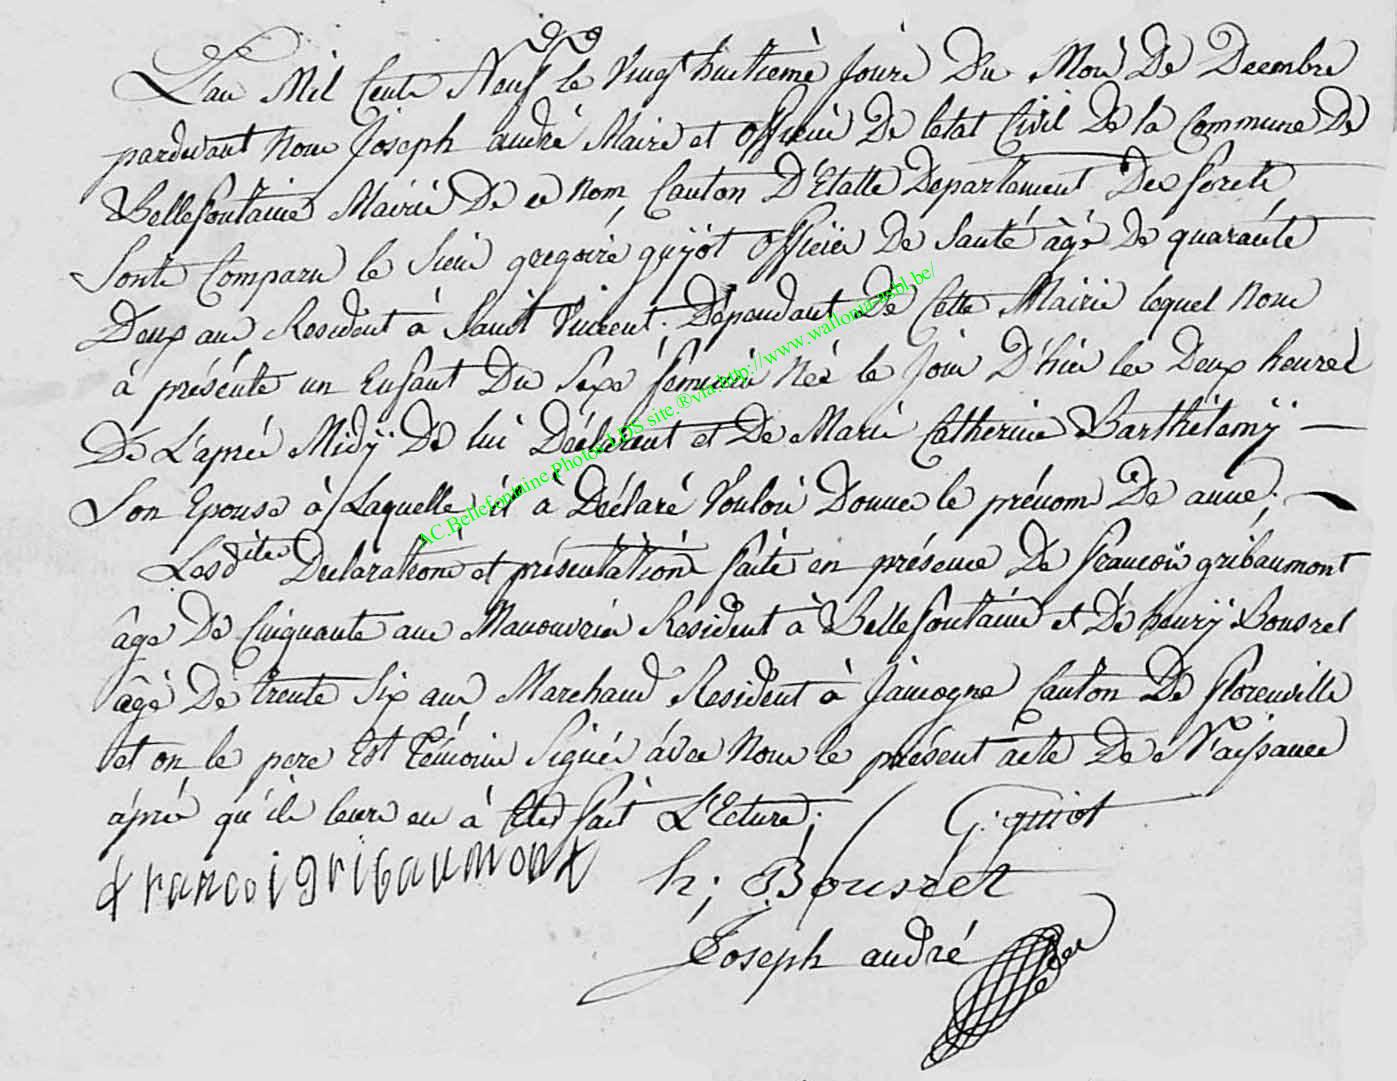 L'an Mil Cents Neuf le Vingt huitieme Jour Du Moi De Decembre
pardevant nous Joseph andré Maire et officier De letat Civil De la Commune De
Bellefontaine Mairie De ce nom, Canton D'Etalle Departement Des forets
Sonts Comparu le Sieur gregoire guÿot officier De Santé âgé De quarante
Deux ans Resident à Saint Vincent; Dépendant De Cette Mairie lequel nous
à présénté un Enfant Du Sexe féminin Née le Jour D'hier les Deux heures
De L'aprés Midÿ De lui Déclarent et De Marie Catherine Barthélemÿ —
Son Epouse à Laquelle il à Déclaré Vouloir Donner le prénom De anne; —
Lesdites Declarations et présentation faite en présence De francois gribaumont
âgé De Cinquante ans Manouvrier Resident à Bellefontaine et De henrÿ Bousrel
âgé De trente Six ans Marchand Resident à Jamogne Canton De florenville
et on le pere Est témoins Signés avec nous le présent acte De Naissance
aprés qu'il leurs en à été fait L'Ecture;
G. guiot
francoi gribaumont h; Bousrel
Joseph andré
AC.Bellefontaine Photos LDS site.®via:http://www.wallonia-asbl.be/